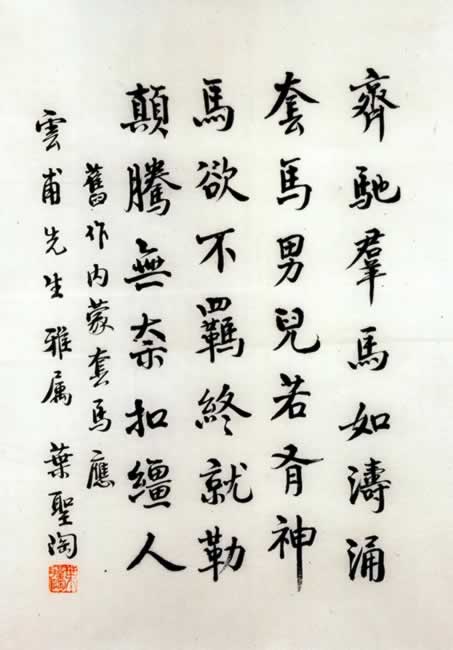 齊馳羣馬如濤涌
套馬男兒若有神
馬欲不羈終就勒
顛騰無柰扣繮人
舊作內蒙套馬應
雲甫先生雅属 葉聖陶